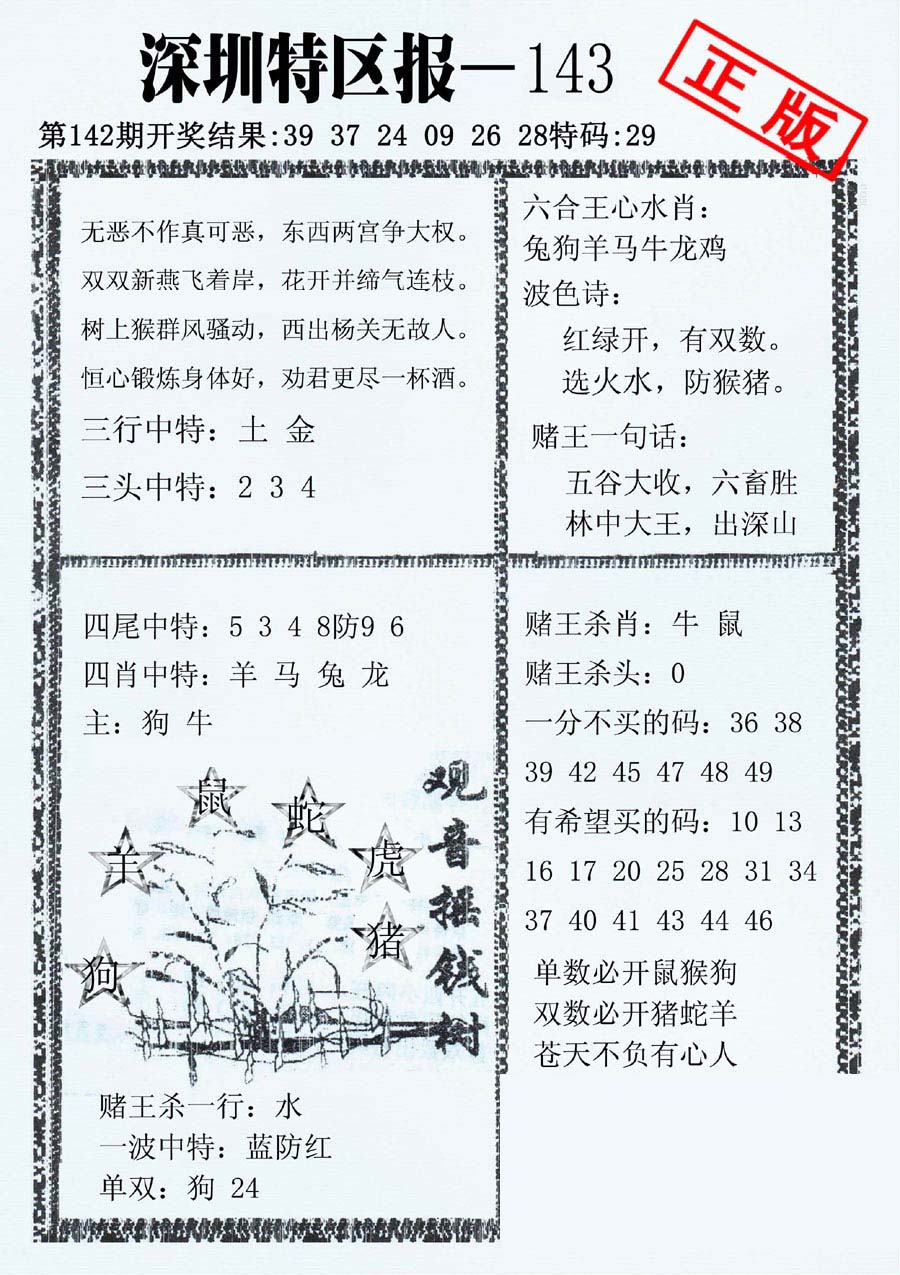 深圳特区报—143
正版
第142期开奖结果:39 37 24 09 26 28特码:29
无恶不作真可恶，东西两宫争大权。
双双新燕飞着岸，花开并缔气连枝。
树上猴群风骚动，西出杨关无故人。
恒心锻炼身体好，劝君更尽一杯酒。
三行中特：土 金
三头中特：2 3 4
六合王心水肖：
兔狗羊马牛龙鸡
波色诗：
红绿开，有双数。
选火水，防猴猪。
赌王一句话：
五谷大收，六畜胜
林中大王，出深山
四尾中特：5 3 4 8防9 6
四肖中特：羊 马 兔 龙
主：狗 牛
鼠
蛇
羊
虎
猪
狗
观音摇钱树
赌王杀一行：水
一波中特：蓝防红
单双：狗 24
赌王杀肖：牛 鼠
赌王杀头：0
一分不买的码：36 38
39 42 45 47 48 49
有希望买的码：10 13
16 17 20 25 28 31 34
37 40 41 43 44 46
单数必开鼠猴狗
双数必开猪蛇羊
苍天不负有心人